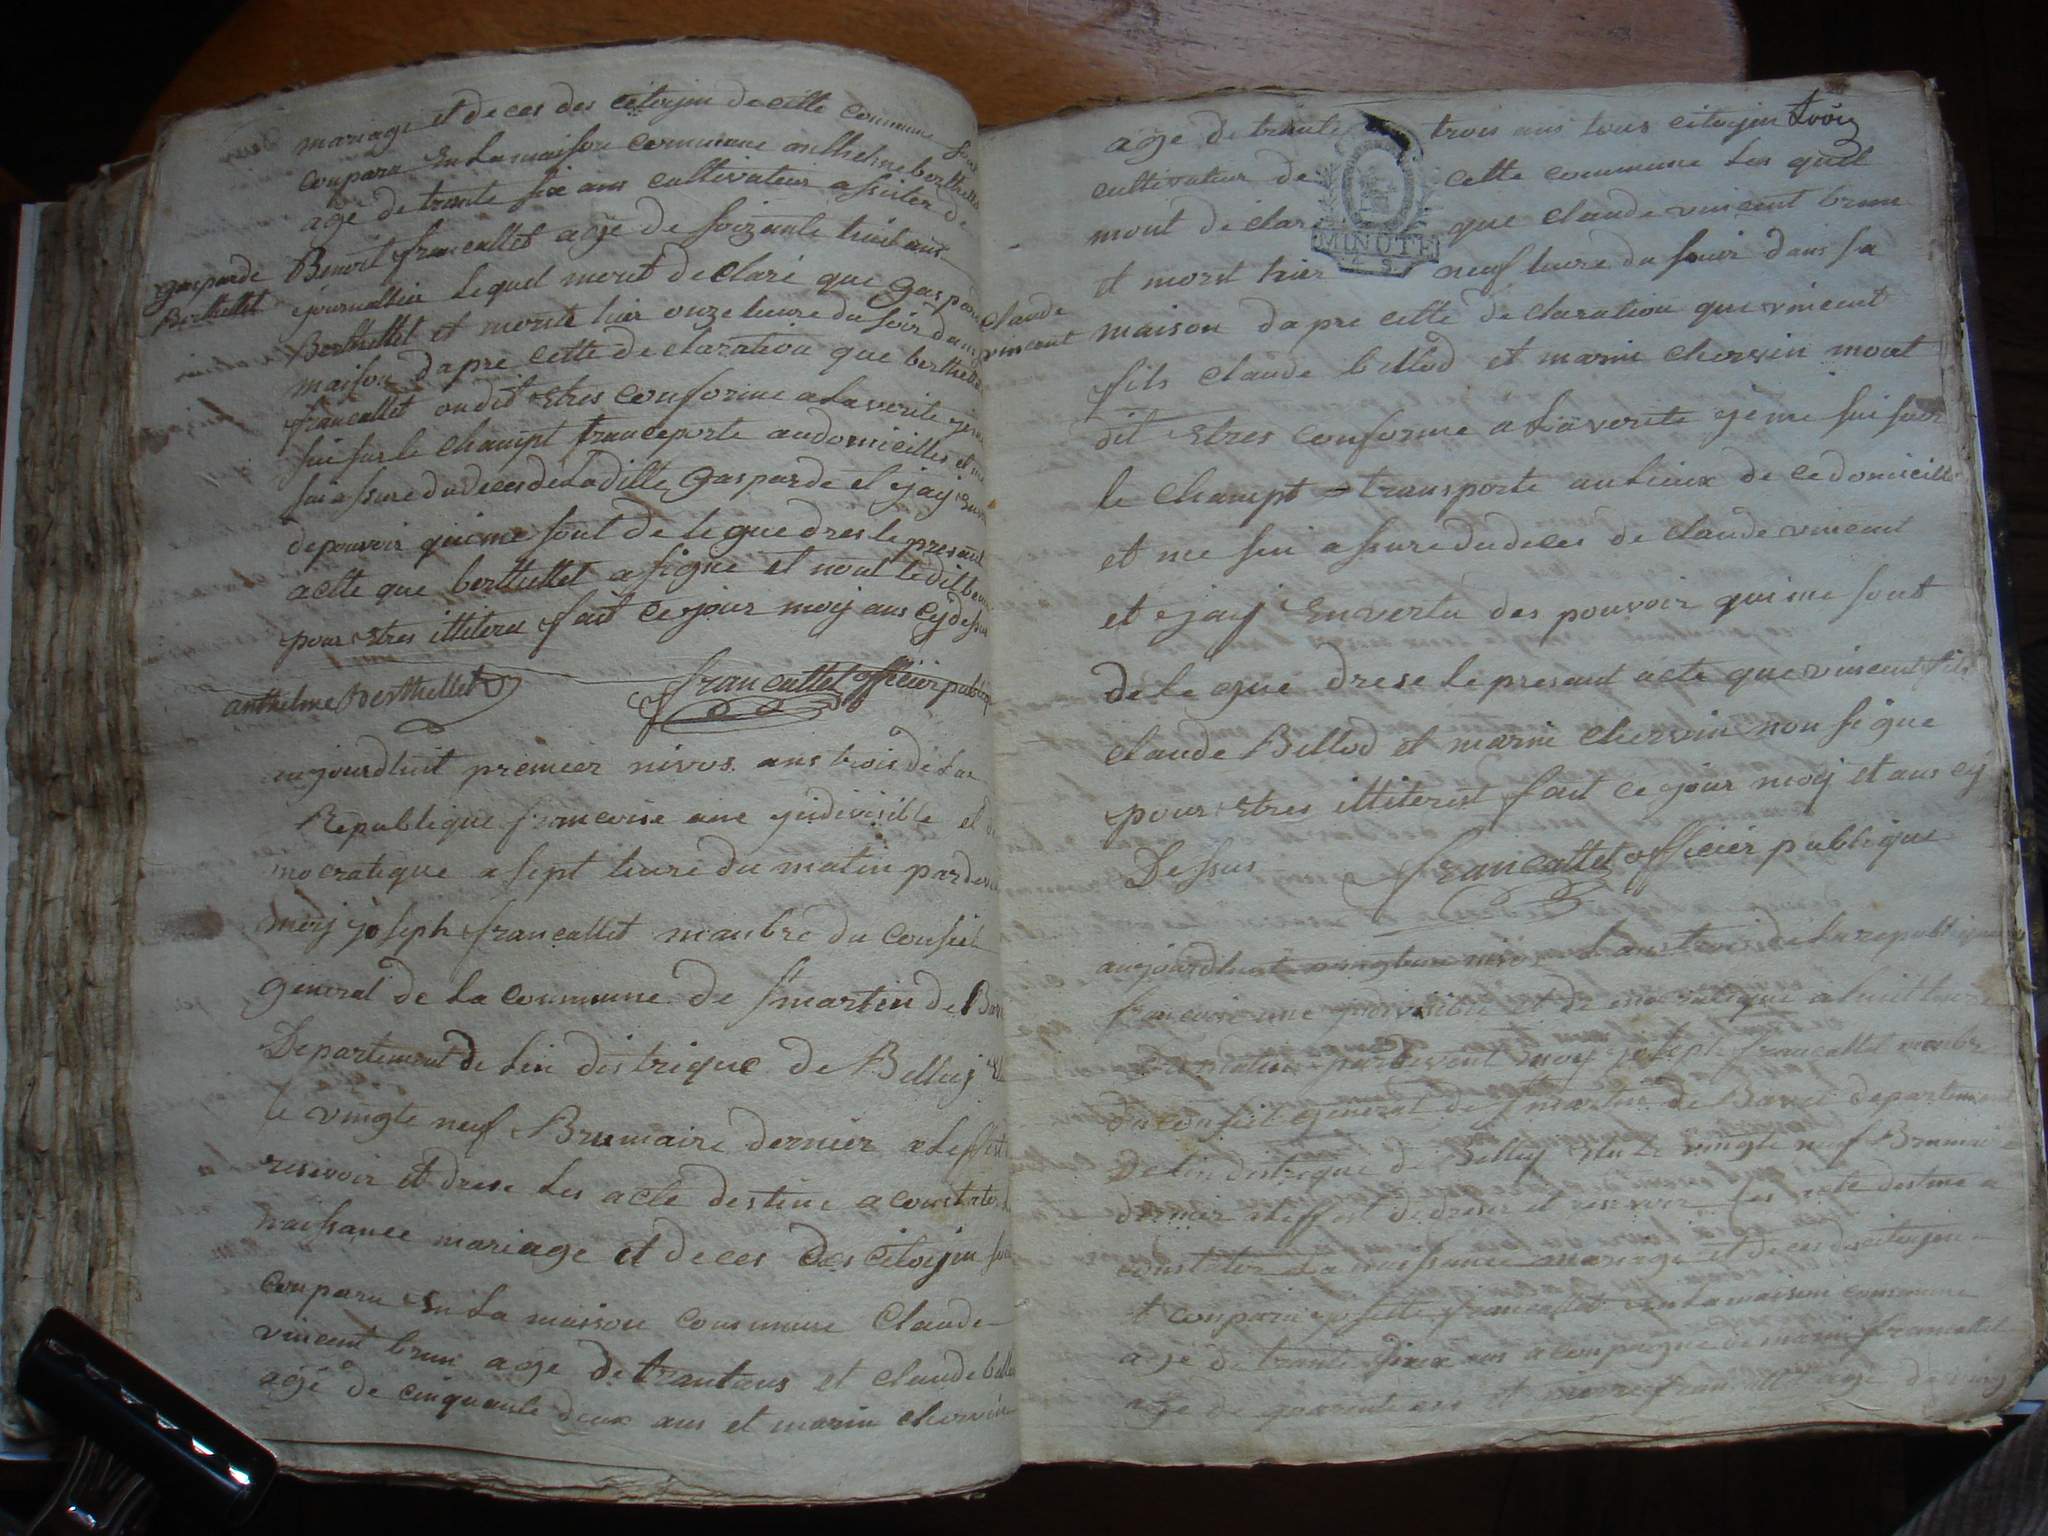 mariage et deces des citoyin de cette commune sont
conparu En La maison commune anthelme berthellet
age de trante six ans cultivateur assister de
Benoit francallet age de soizante huit ans
gasparde
Berthellet
journallier Lequel mont declaré que gasparde
Berthellet et morte hier onze heure du soir dans
maison dapre cette declaration que berthellet
francallet on dit Estres conforme a La verite je me
sui sur le champt transporte audomicilles et me
sui assure du deces de Laditte gasparde et jay En
depouvoir quime sont delegue dres le presant
actte que berthellet a signe et nont ledit benoit
pour Estres illitere fait ce jour moij ans cy dessus
anthelme Berthellet francallet officier publique
aujourdhuit premier nivos ans trois de La
Republique francoise une yndivisible et de
mocratique a sept heure du matin pardevant
moij joseph francallet manbre du conseil
general de La commune de st martin de Bavel
Departement de Lin distrique de Belley Elu
le vingte neuf Brumaire dernier a Leffest
resevoir et drese Les acte destine a constater
naissance mariage et deces des citoyin sont
conparu En La maison commune Claude
vincent brun age de trantans et claude billod
age de cinquante deux ans et marin chervin
age de trante trois ans tous citoyin trois
cultivateur de cette commune Les quel
mont declar que claude vincent brun
et mort hier neuf heure du souir dans sa
claude
vincent
maison dapre cette declaration que vincent
fils claude billod et marin chervin mont
dit Estres conforme a La verite je me sui sur
le champt transporte au lieux de ce domicille
et me sui assure du deces de claude vincent
et jay En vertu des pouvoir qui me sont
delegue drese le presant acte que vincent fils
claude Billod et marin chervin non signe
pour Estres illiterest fait ce jour moij et ans cy
Dessus francallet officier publique
aujourdhuit nivos Lans trois de La republique
francoise une yndivisible et democratique a huit heure
matin pardevant moij joseph francallet manbre
du conseil general de st martin de Bavel departement
de Lin distrique de Belley Elu Le vingte neuf Brumaire
dernier a Leffest de dreser et resevoir Les acte destine a
constater La naissance mariage et deces des citoyin
et conparu josette francallet En La maison commune
age de trante deux ans aconpagne de marin francallet
age de quarente ans et pierre francallet age de vingt
MINUTE